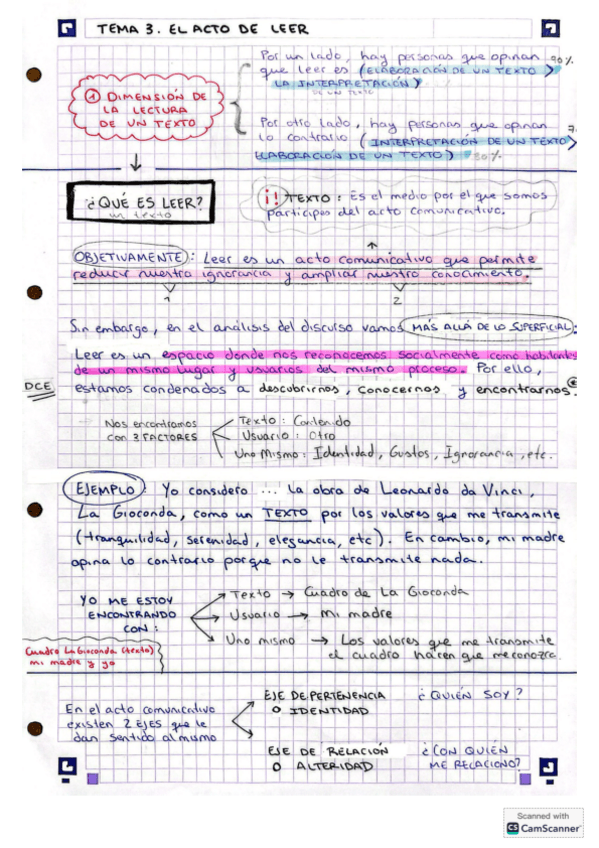 TEMA 3. EL ACTO DE LEER
Por un lado, hay personas que opinan 90%
que leer es (ELABORACIÓN DE UN TEXTO >
LA INTERPRETACIÓN)
DE UN TEXTO
① DIMENSIÓN DE
LA LECTURA
DE UN TEXTO
Por otro lado, hay personas que opinan
lo contrario (INTERPRETACIÓN DE UN TEXTO >
ELABORACIÓN DE UN TEXTO)
¿QUÉ ES LEER?
un texto
¡! TEXTO: Es el medio por el que somos
partícipes del acto comunicativo.
OBJETIVAMENTE: Leer es un acto comunicativo que permite
reducir nuestra ignorancia y ampliar nuestro conocimiento.
1 2
Sin embargo, en el análisis del discurso vamos MÁS ALLÁ DE LO SUPERFICIAL:
Leer es un espacio donde nos reconocemos socialmente como habitantes
de un mismo lugar y usuarios del mismo proceso. Por ello,
DCE estamos condenados a descubrirnos, conocernos y encontrarnos.
Nos encontramos
con 3 FACTORES
Texto: Contenido
Usuario: Otro
Uno Mismo: Identidad, Gustos, Ignorancia, etc.
EJEMPLO: Yo considero ... la obra de Leonardo da Vinci,
La Gioconda, como un TEXTO por los valores que me transmite
(tranquilidad, serenidad, elegancia, etc). En cambio, mi madre
opina lo contrario porque no le transmite nada.
YO ME ESTOY
ENCONTRANDO
CON:
Texto → Cuadro de La Gioconda
Usuario → Mi madre
Uno mismo → Los valores que me transmite
el cuadro hacen que me conozca.
Cuadro La Gioconda (texto)
mi madre y yo
En el acto comunicativo
existen 2 EJES que le
dan sentido al mismo
EJE DE PERTENENCIA
O IDENTIDAD
¿QUIÉN SOY?
EJE DE RELACIÓN
O ALTERIDAD
¿CON QUIÉN
ME RELACIONO?
Scanned with
CS CamScanner